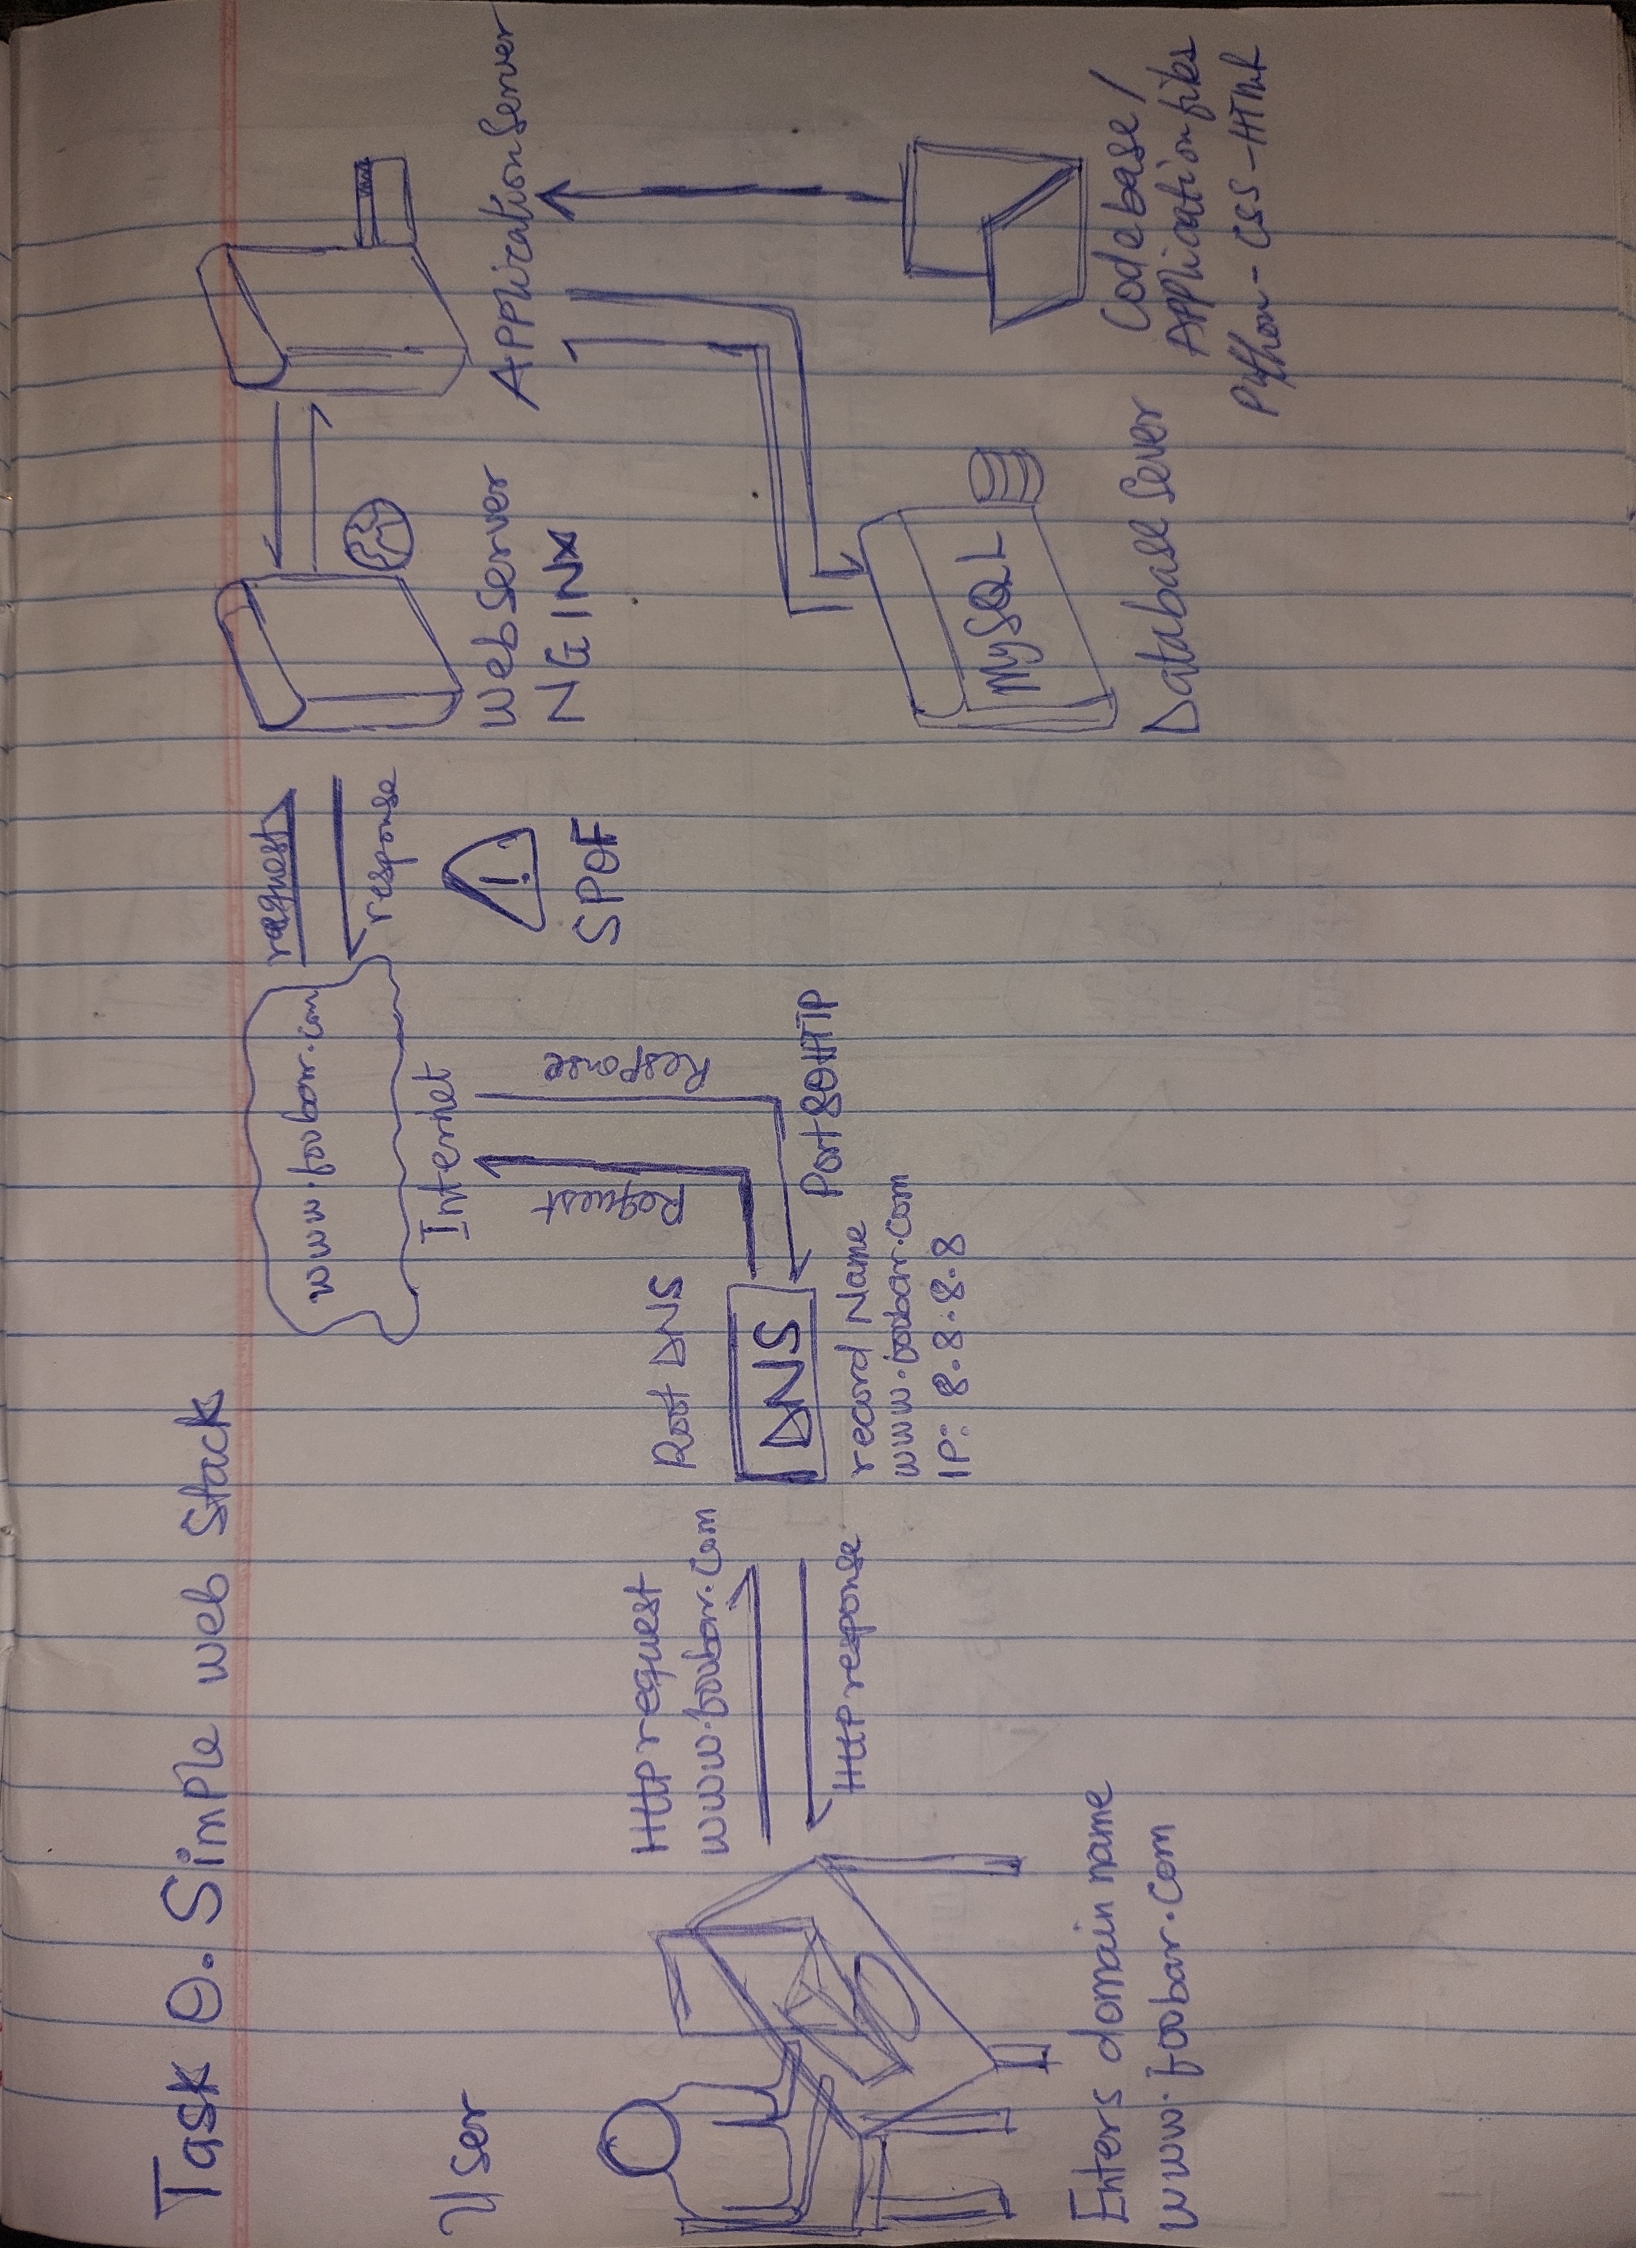 Task 0. Simple web stack
User
Enters domain name
www.foobar.com
HTTP request
www.foobar.com
HTTP response
Root DNS
DNS
record Name
www.foobar.com
IP: 8.8.8.8
Port 80 HTTP
Request
Response
www.foobar.com
Internet
request
response
SPOF
Web server
NGINX
Application Server
MySQL
Database Sever
Codebase/
Application files
Python-CSS-HTML